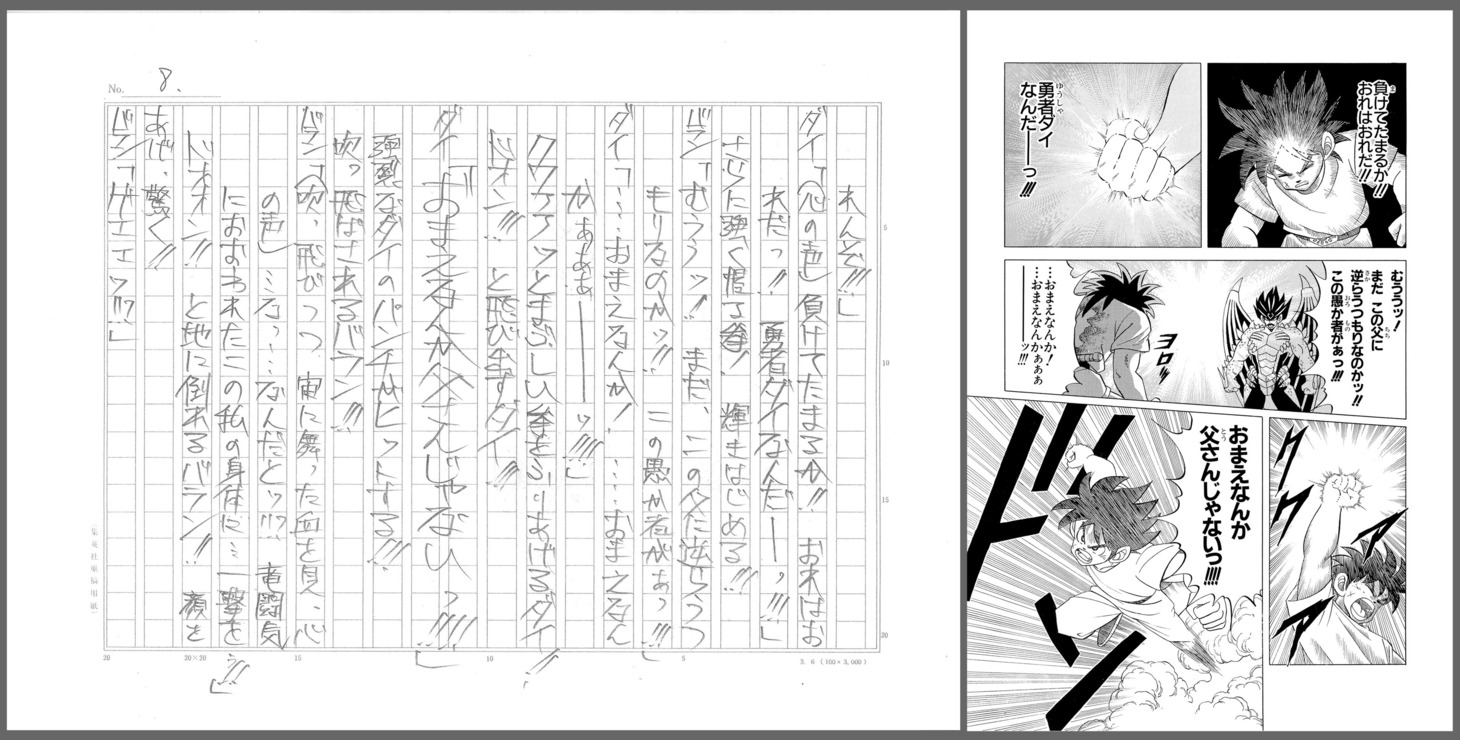 No. 8.
れんぞ!!!」
ダイ「(心の声) 負けてたまるか!! おれはお
れだっ!! 勇者ダイなんだーーっ!!!」
さらに強く握る拳! 輝きはじめる!!!
バラン「むううッ! まだ、この父に逆らうつ
もりなのかッ!! この愚か者がぁっ!!!」
ダイ「……おまえなんか! ……おまえなん
かぁぁぁーーーーッ!!!!」
クワアアッとまぶしい拳をふりあげるダイ!!
ドオン!!! と飛び出すダイ!!
ダイ「おまえなんか父さんじゃないっ!!!!」
強烈なダイのパンチがヒットする!!!
吹っ飛ばされるバラン!!!
バラン「(吹っ飛びつつ、宙に舞った血を見、心
の声) …なっ…なんだとッ!!? 竜闘気
におおわれたこの私の身体に… 一撃を…!!!」
ドオオン!! と地に倒れるバラン!! 顔を
あげ、驚く!!
バラン「ゲエエッ!!?」
5
10
15
20
20
20×20
15
10
5
3. 6 (100×3,000)
集英社原稿用紙
負けてたまるか!!
おれはおれだ!!
勇者ダイ
なんだ――っ!!!
むううッ!
まだ この父に
逆らうつもりなのかッ!!
この愚か者がぁっ!!!
…おまえなんか!
…おまえなんかぁぁぁ
――――ッ!!!
ヨロッ
クワアアッ
おまえなんか
父さんじゃないっ!!!!
ドンッ